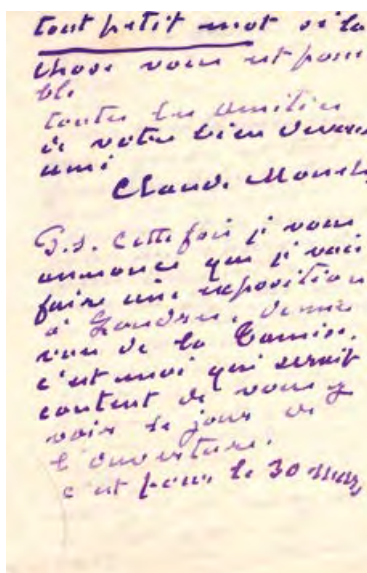 tout petit mot si la
chose vous est possi
ble
toutes les amitiés
de votre bien dévoué
ami
Claude Monet
P.S. Cette fois je vous
annonce que je vais
faire une exposition
à Londres, de mes
vues de la Tamise.
c'est moi qui serait
content de vous y
voir le jour de
l'ouverture.
c'est pour le 30 mars